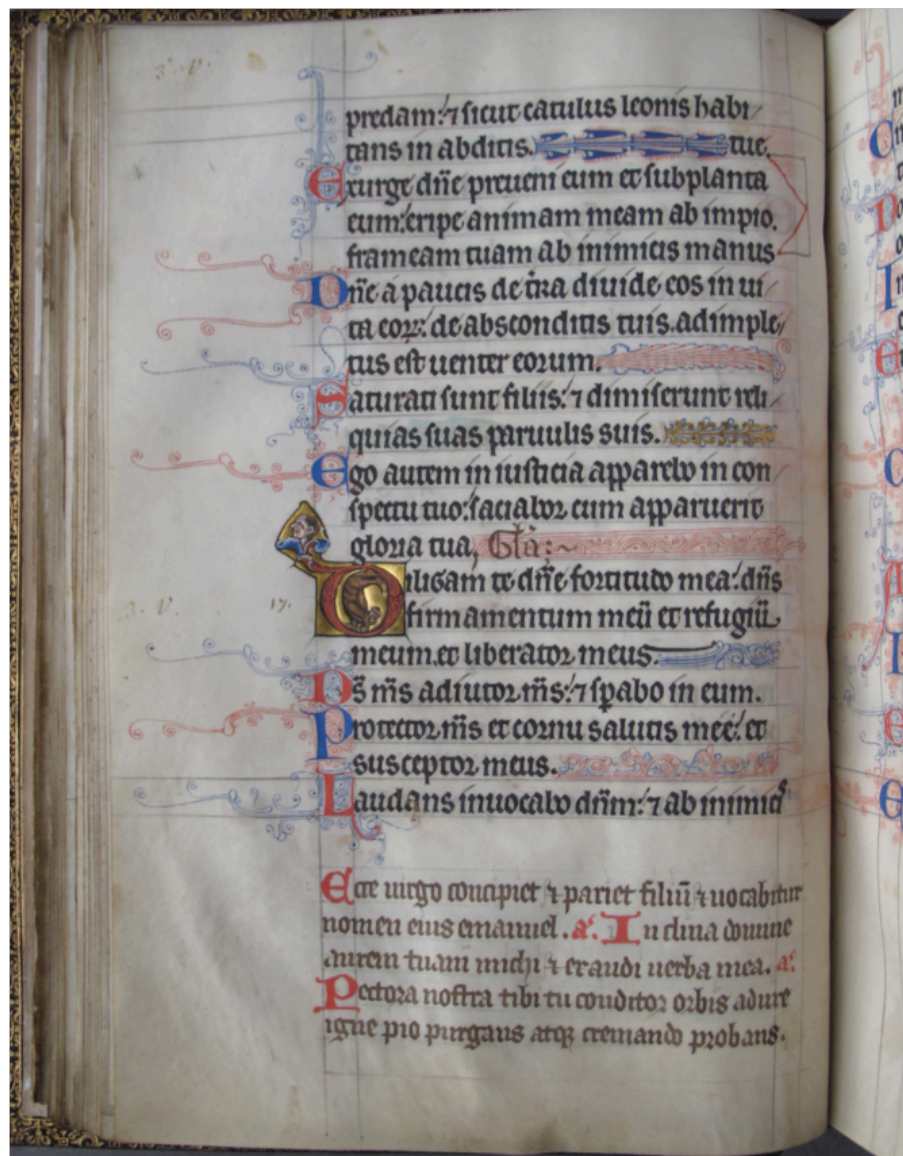 3. V.
predam:⁊ sicut catulus leonis habi
tans in abditis. tue.
Exurge dñe preueni eum et subplanta
eum:eripe animam meam ab impio.
frameam tuam ab inimicis manus
Dñe a paucis de tr̄a diuide eos in ui
ta eoꝝ: de absconditis tuis.adimple
tus est uenter eorum.
Saturati sunt filiis:⁊ dimiserunt reli
quias suas paruulis suis.
Ego autem in iusticia apparebo in con
spectu tuo:saciabor cum apparuerit
gloria tua, Gl̃a:~
Diligam te dñe fortitudo mea:dñs
3. V. 17. firmamentum meū et refugiū
meum.et liberator meus.
Ds̄ m̄s adiutor m̄s:⁊ sp̄abo in eum.
Protector m̄s et cornu salutis meē: et
susceptor meus.
Laudans inuocabo dn̄m:⁊ ab inimicis
Ecce uirgo concipiet ⁊ pariet filiū ⁊ uocabitur
nomen eius emanuel. a͛. Inclina domine
aurem tuam michi ⁊ exaudi uerba mea. a͛.
Pectora nostra tibi tu conditor orbis adure
igne pio purgans atqꝫ cremando probans.